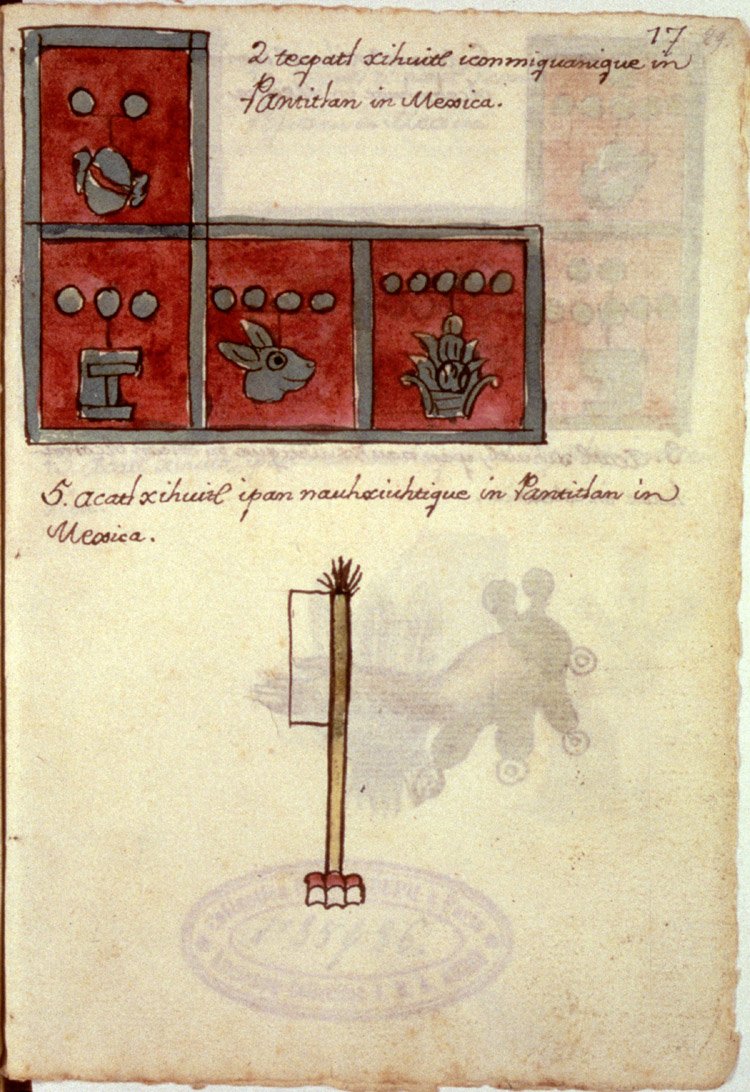 17
2 tecpatl xihuitl iconmiquanique in
Pantitlan in Mexica.
5. acatl xihuitl ipan nauhxiuhtique in Pantitlan in
Mexica.